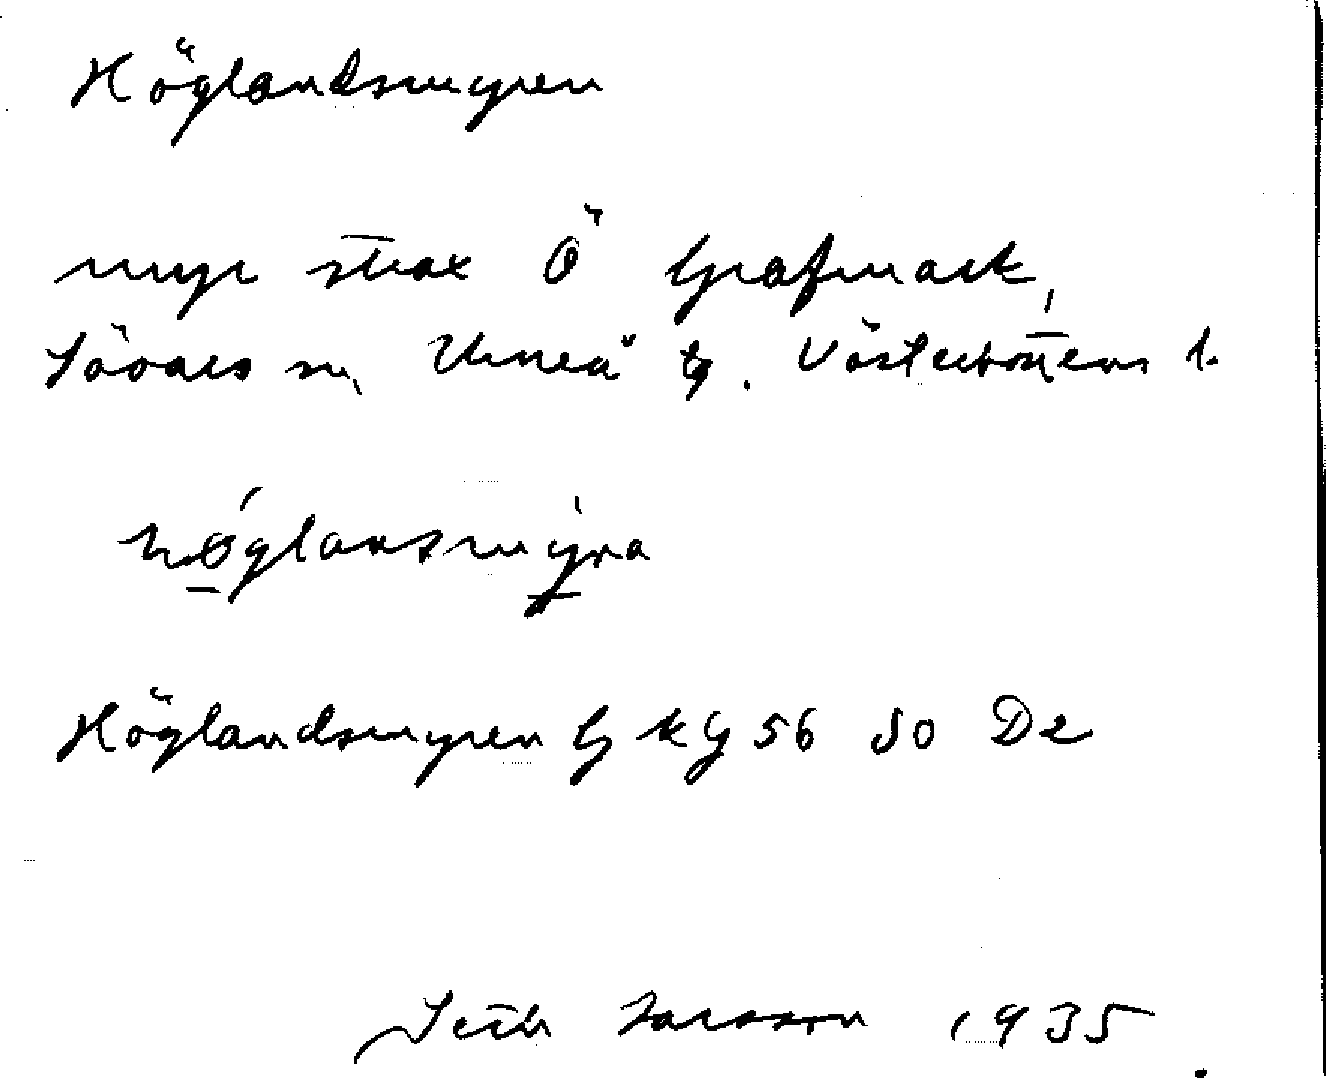 Höglandsmyren
myr strax Ö Grafmark,
Sävars sn, Umeå tg. Västerbottens l.
höglansmyra
Höglandsmyren G k G 56 SO De
Seth Larsson 1935